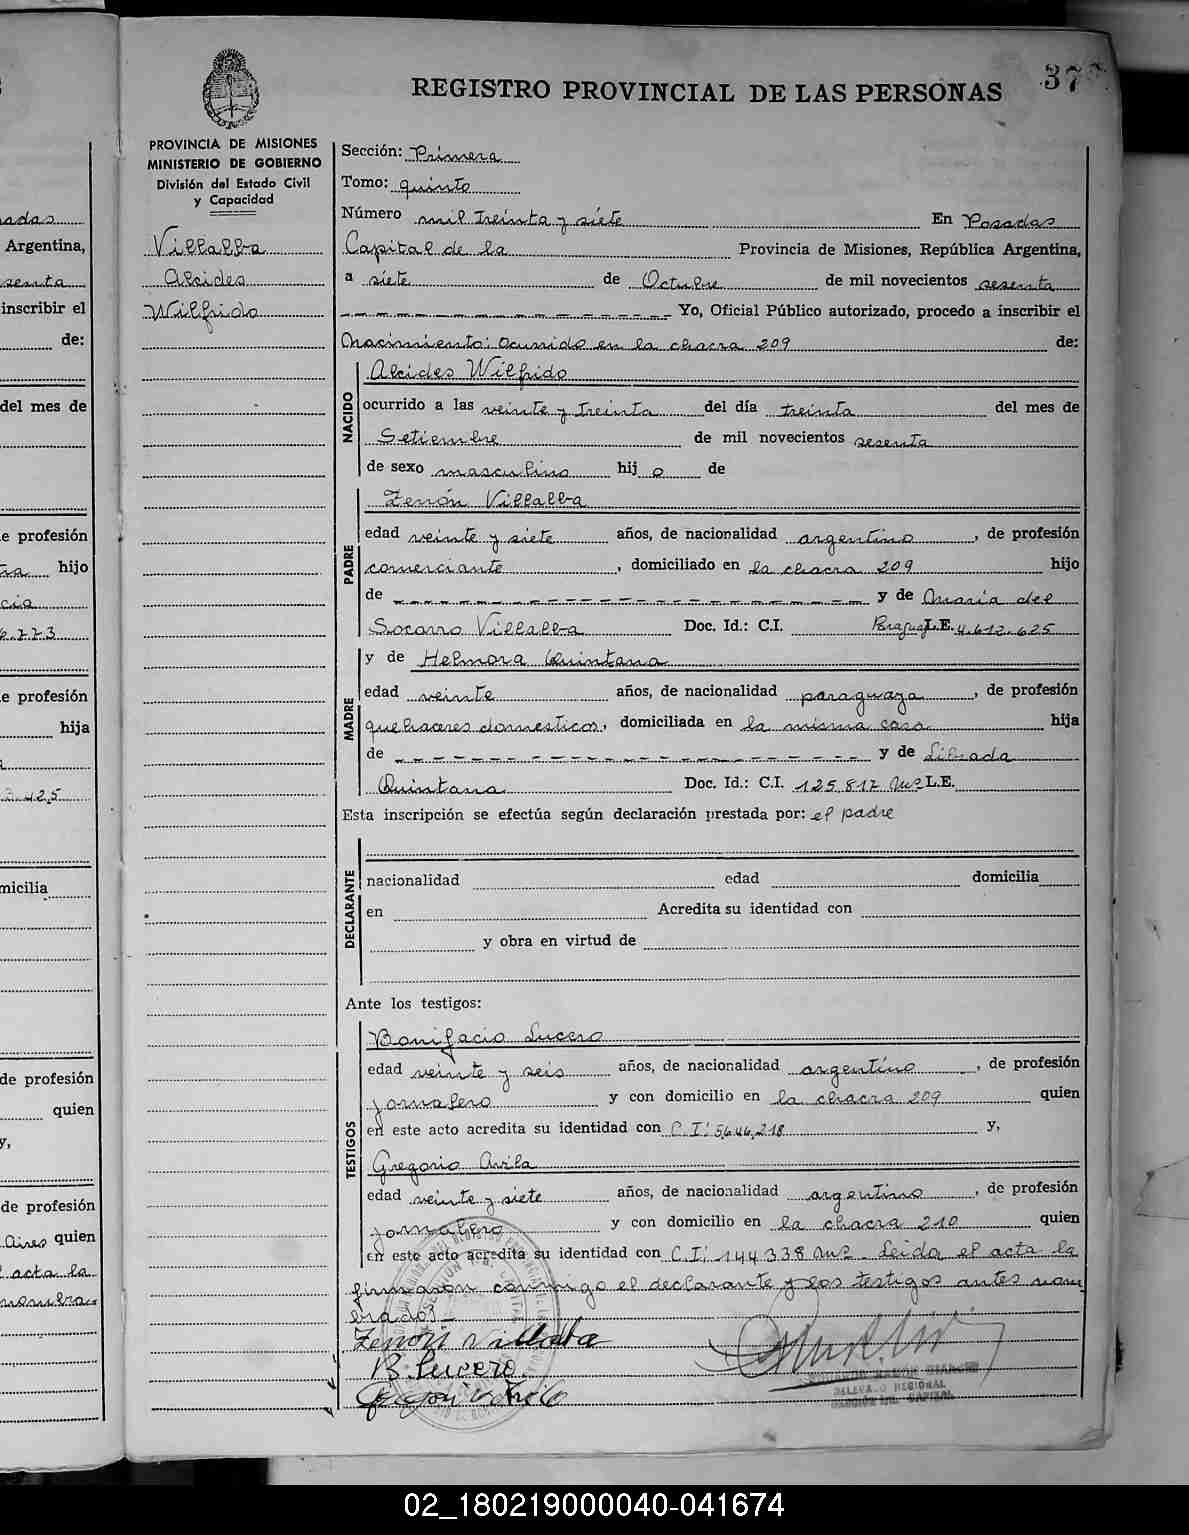 REGISTRO PROVINCIAL DE LAS PERSONAS
37
PROVINCIA DE MISIONES
MINISTERIO DE GOBIERNO
División del Estado Civil
y Capacidad
Villalba
Alcides
Wilfrido
Sección: Primera
Tomo: quinto
Número mil treinta y siete En Posadas
Capital de la Provincia de Misiones, República Argentina,
a siete de Octubre de mil novecientos sesenta
Yo, Oficial Público autorizado, procedo a inscribir el
Nacimiento: Ocurrido en la chacra 209 de:
NACIDO
Alcides Wilfrido
ocurrido a las veinte y treinta del día treinta del mes de
Setiembre de mil novecientos sesenta
de sexo masculino hij o de
PADRE
Zenón Villalba
edad veinte y siete años, de nacionalidad argentino, de profesión
comerciante, domiciliado en la chacra 209 hijo
de y de María del
Socorro Villalba Doc. Id.: C.I. L.E. 4.612.625
MADRE
y de Helmora Quintana
edad veinte años, de nacionalidad paraguaya, de profesión
quehaceres domesticos, domiciliada en la misma casa hija
de y de Librada
Quintana Doc. Id.: C.I. 125.817 Mnes L.E.
Esta inscripción se efectúa según declaración prestada por: el padre
DECLARANTE
nacionalidad edad domicilia
en Acredita su identidad con
y obra en virtud de
Ante los testigos:
TESTIGOS
Bonifacio Lucero
edad veinte y seis años, de nacionalidad argentino, de profesión
jornalero y con domicilio en la chacra 209 quien
en este acto acredita su identidad con C.I: 5.646.218 y,
Gregorio Avila
edad veinte y siete años, de nacionalidad argentino, de profesión
jornalero y con domicilio en la chacra 210 quien
en este acto acredita su identidad con C.I: 144338 Leida el acta la
firmaron conmigo el declarante y los testigos antes nom
brados
Zenon Villalba
B. Lucero
DELEGADO REGIONAL
adas
Argentina,
senta
inscribir el
de:
del mes de
e profesión
hijo
cia
6.223
e profesión
hija
425
micilia
de profesión
quien
y,
de profesión
Aires quien
acta la
nombra
02_180219000040-041674